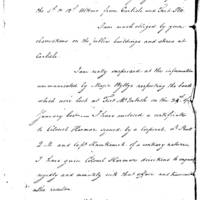 the 5th & 12th Ultimo from Carlisle and Fort Pitt.
I am much obliged by your
observations on the public buildings and stores at
Carlisle.
I am really surprised at the information
communicated by Major Wyllys respecting the goods
which were lost at Fort McIntosh on the
January last — I have enclosed a certificate
to Colonel Harmar signed by a Corporal,
Q M and Capt of a contrary nature.
I have given Colonel Harmar directions to enquire
rigidly and minutely into that affair and
the result